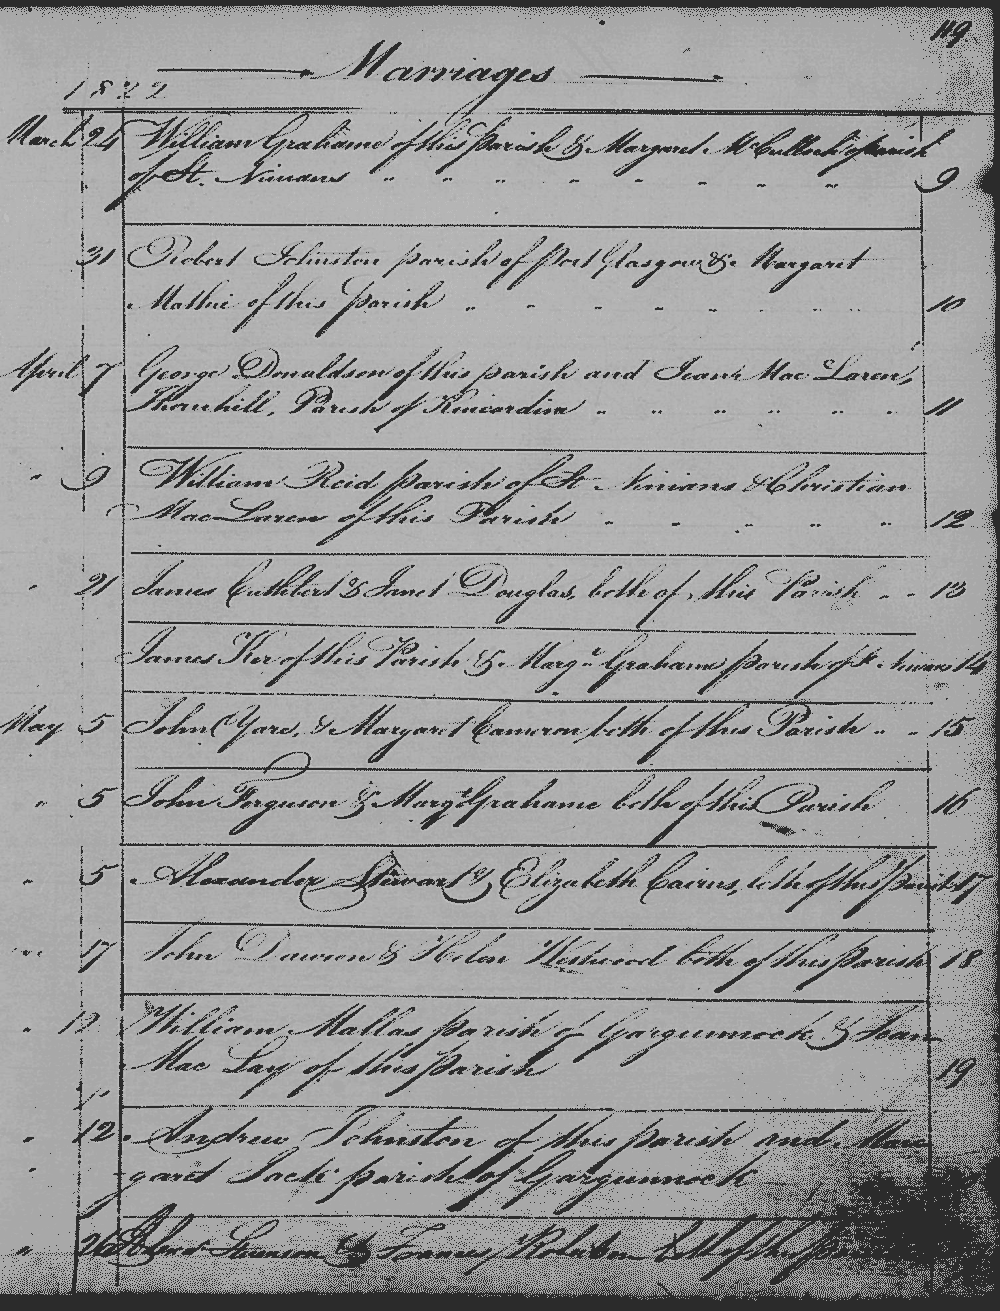 119
Marriages
1822
March 24 William Grahame of this parish & Margaret McCulloch parish
of St. Ninians " " " " " " " " 9
31 Robert Johnston parish of Port Glasgow & Margaret
Mathie of this parish " " " " " " " 10
April 7 George Donaldson of this parish and Jean Mac Laren,
Thornhill, Parish of Kincardine " " " " " " 11
" 9 William Reid parish of St Ninians & Christian
Mac Laren of this Parish " " " " " 12
" 21 James Cuthbert & Janet Douglas, both of this Parish " " 13
James Ker of this Parish & Margt Grahame parish of St Ninians 14
May 5 John Yare, & Margaret Cameron both of this Parish " " 15
" 5 John Ferguson & Margt Grahame both of this Parish 16
" 5 Alexander Stewart & Elizabeth Cairns, both of this parish 17
" 17 John Dawson & Helen Westwood both of this parish 18
" 12 William Mallas parish of Gargunnock & Jean
Mac Lay of this parish 19
" 12 Andrew Johnston of this parish and Mar
garet parish of Gargunnock
" 26 & both of this